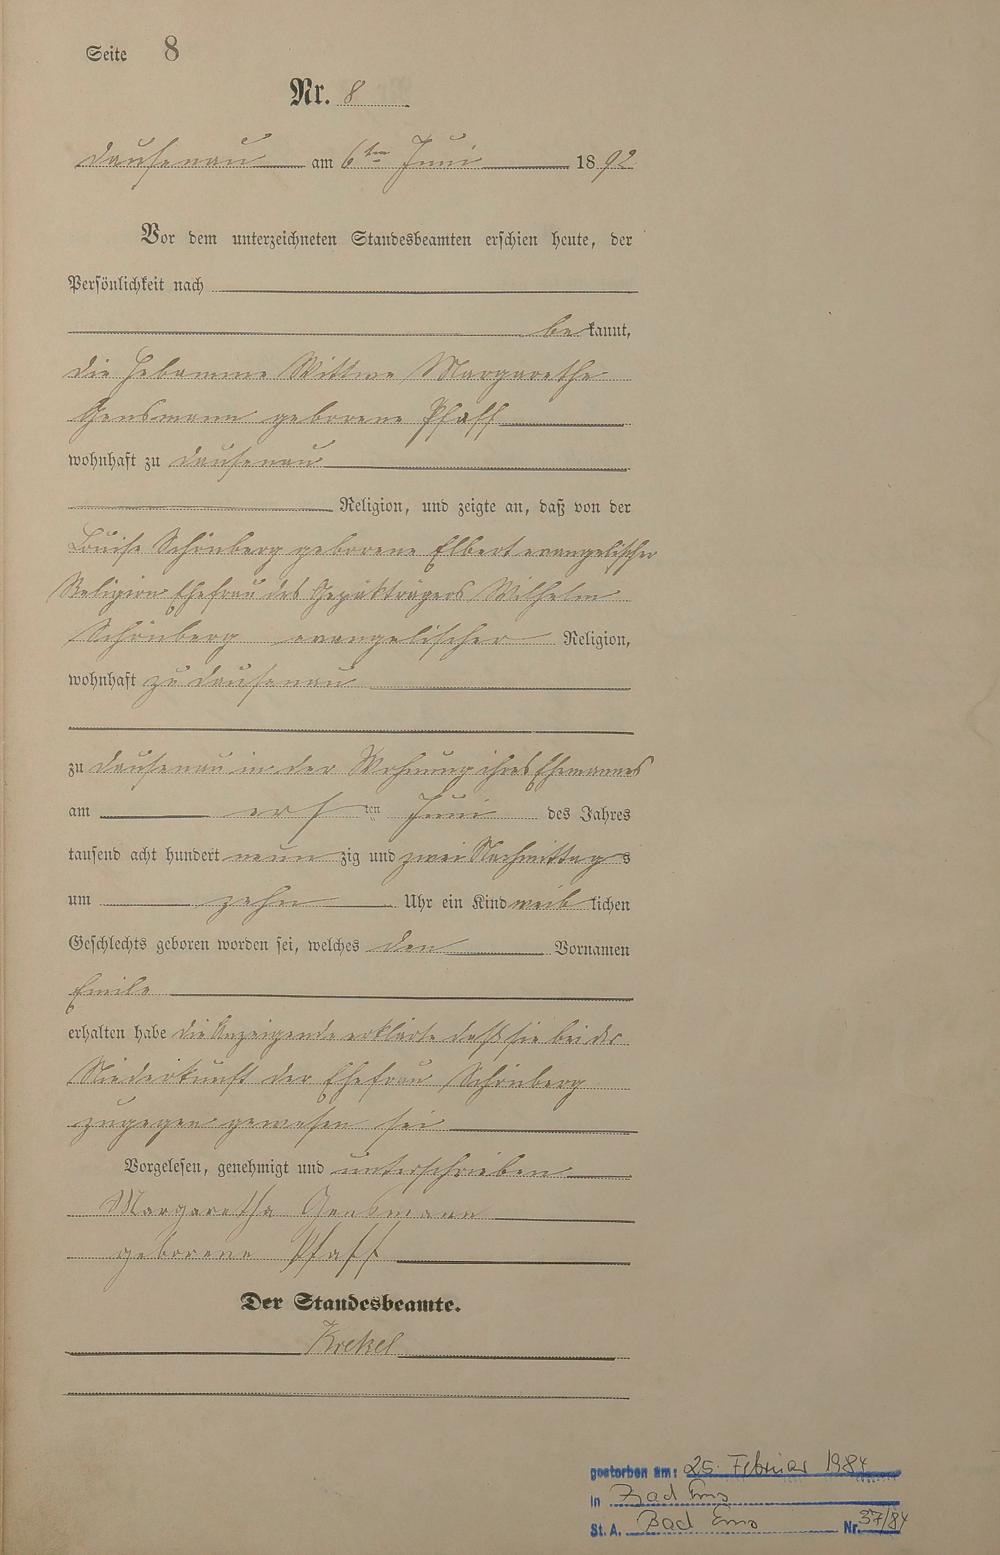 Seite 8
Nr. 8
Dausenau am 6ten Juni 1892
Vor dem unterzeichneten Standesbeamten erschien heute, der
Persönlichkeit nach
bekannt,
die Hebamme Wittwe Margarethe
Gensmann geborene Pfaff
wohnhaft zu Dausenau
Religion, und zeigte an, daß von der
Louise Schönberg geborene Elbert evangelischer
Religion Ehefrau des Gepäkträgers Wilhelm
Schönberg evangelischer Religion,
wohnhaft zu Dausenau
zu Dausenau in der Wohnung ihres Ehemannes
am ersten Juni des Jahres
tausend acht hundert neunzig und zwei Nachmittags
um zehn Uhr ein Kind weiblichen
Geschlechts geboren worden sei, welches den Vornamen
Emile
erhalten habe die Anzeigende erklärte daß sie bei der
Niederkunft der Ehefrau Schönberg
zugegen gewesen sei
Vorgelesen, genehmigt und unterschrieben
Margaretha Gensmann
geborene Pfaff
Der Standesbeamte.
Krekel
gestorben am: 25. Februar 1984
in Bad Ems
St. A. Bad Ems Nr. 37/84